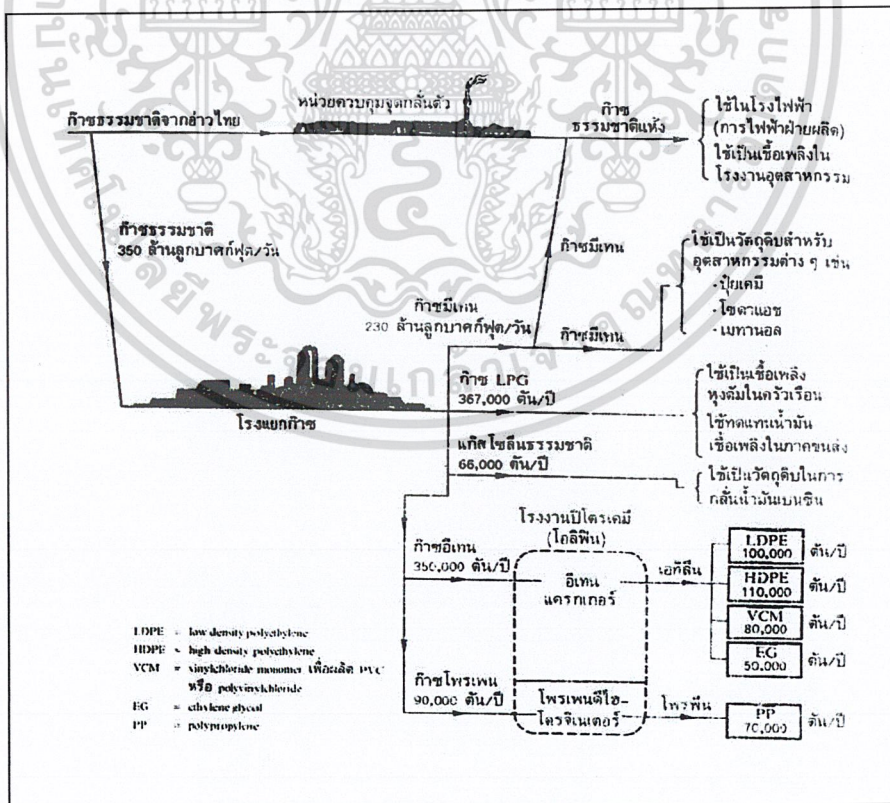 หน่วยควบคุมจุดกลั่นตัว
ก๊าซธรรมชาติจากอ่าวไทย
ก๊าซ
ธรรมชาติแห้ง
ใช้ในโรงไฟฟ้า
(การไฟฟ้าฝ่ายผลิต)
ใช้เป็นเชื้อเพลิงใน
โรงงานอุตสาหกรรม
ก๊าซธรรมชาติ
350 ล้านลูกบาศก์ฟุต/วัน
ก๊าซมีเทน
ใช้เป็นวัตถุดิบสำหรับ
อุตสาหกรรมต่าง ๆ เช่น
-ปุ๋ยเคมี
-โซดาแอช
-เมทานอล
ก๊าซมีเทน
230 ล้านลูกบาศก์ฟุต/วัน
ก๊าซมีเทน
โรงแยกก๊าซ
ก๊าซ LPG
367,000 ตัน/ปี
ใช้เป็นเชื้อเพลิง
หุงต้มในครัวเรือน
ใช้ทดแทนน้ำมัน
เชื้อเพลิงในภาคขนส่ง
แก๊สโซลีนธรรมชาติ
66,000 ตัน/ปี
ใช้เป็นวัตถุดิบในการ
กลั่นน้ำมันเบนซิน
โรงงานปิโตรเคมี
(โอลิฟิน)
ก๊าซอีเทน
350,000 ตัน/ปี
อีเทน
แครกเกอร์
เอทิลีน
LDPE
100,000 ตัน/ปี
HDPE
110,000 ตัน/ปี
VCM
80,000 ตัน/ปี
EG
50,000 ตัน/ปี
ก๊าซโพรเพน
90,000 ตัน/ปี
โพรเพนดีไฮ-
โดรจิเนเตอร์
โพรพีน
PP
70,000 ตัน/ปี
LDPE = low density polyethylene
HDPE = high density polyethylene
VCM = vinylchloride monomer เพื่อผลิต PVC
หรือ polyvinylchloride
EG = ethylene glycol
PP = polypropylene